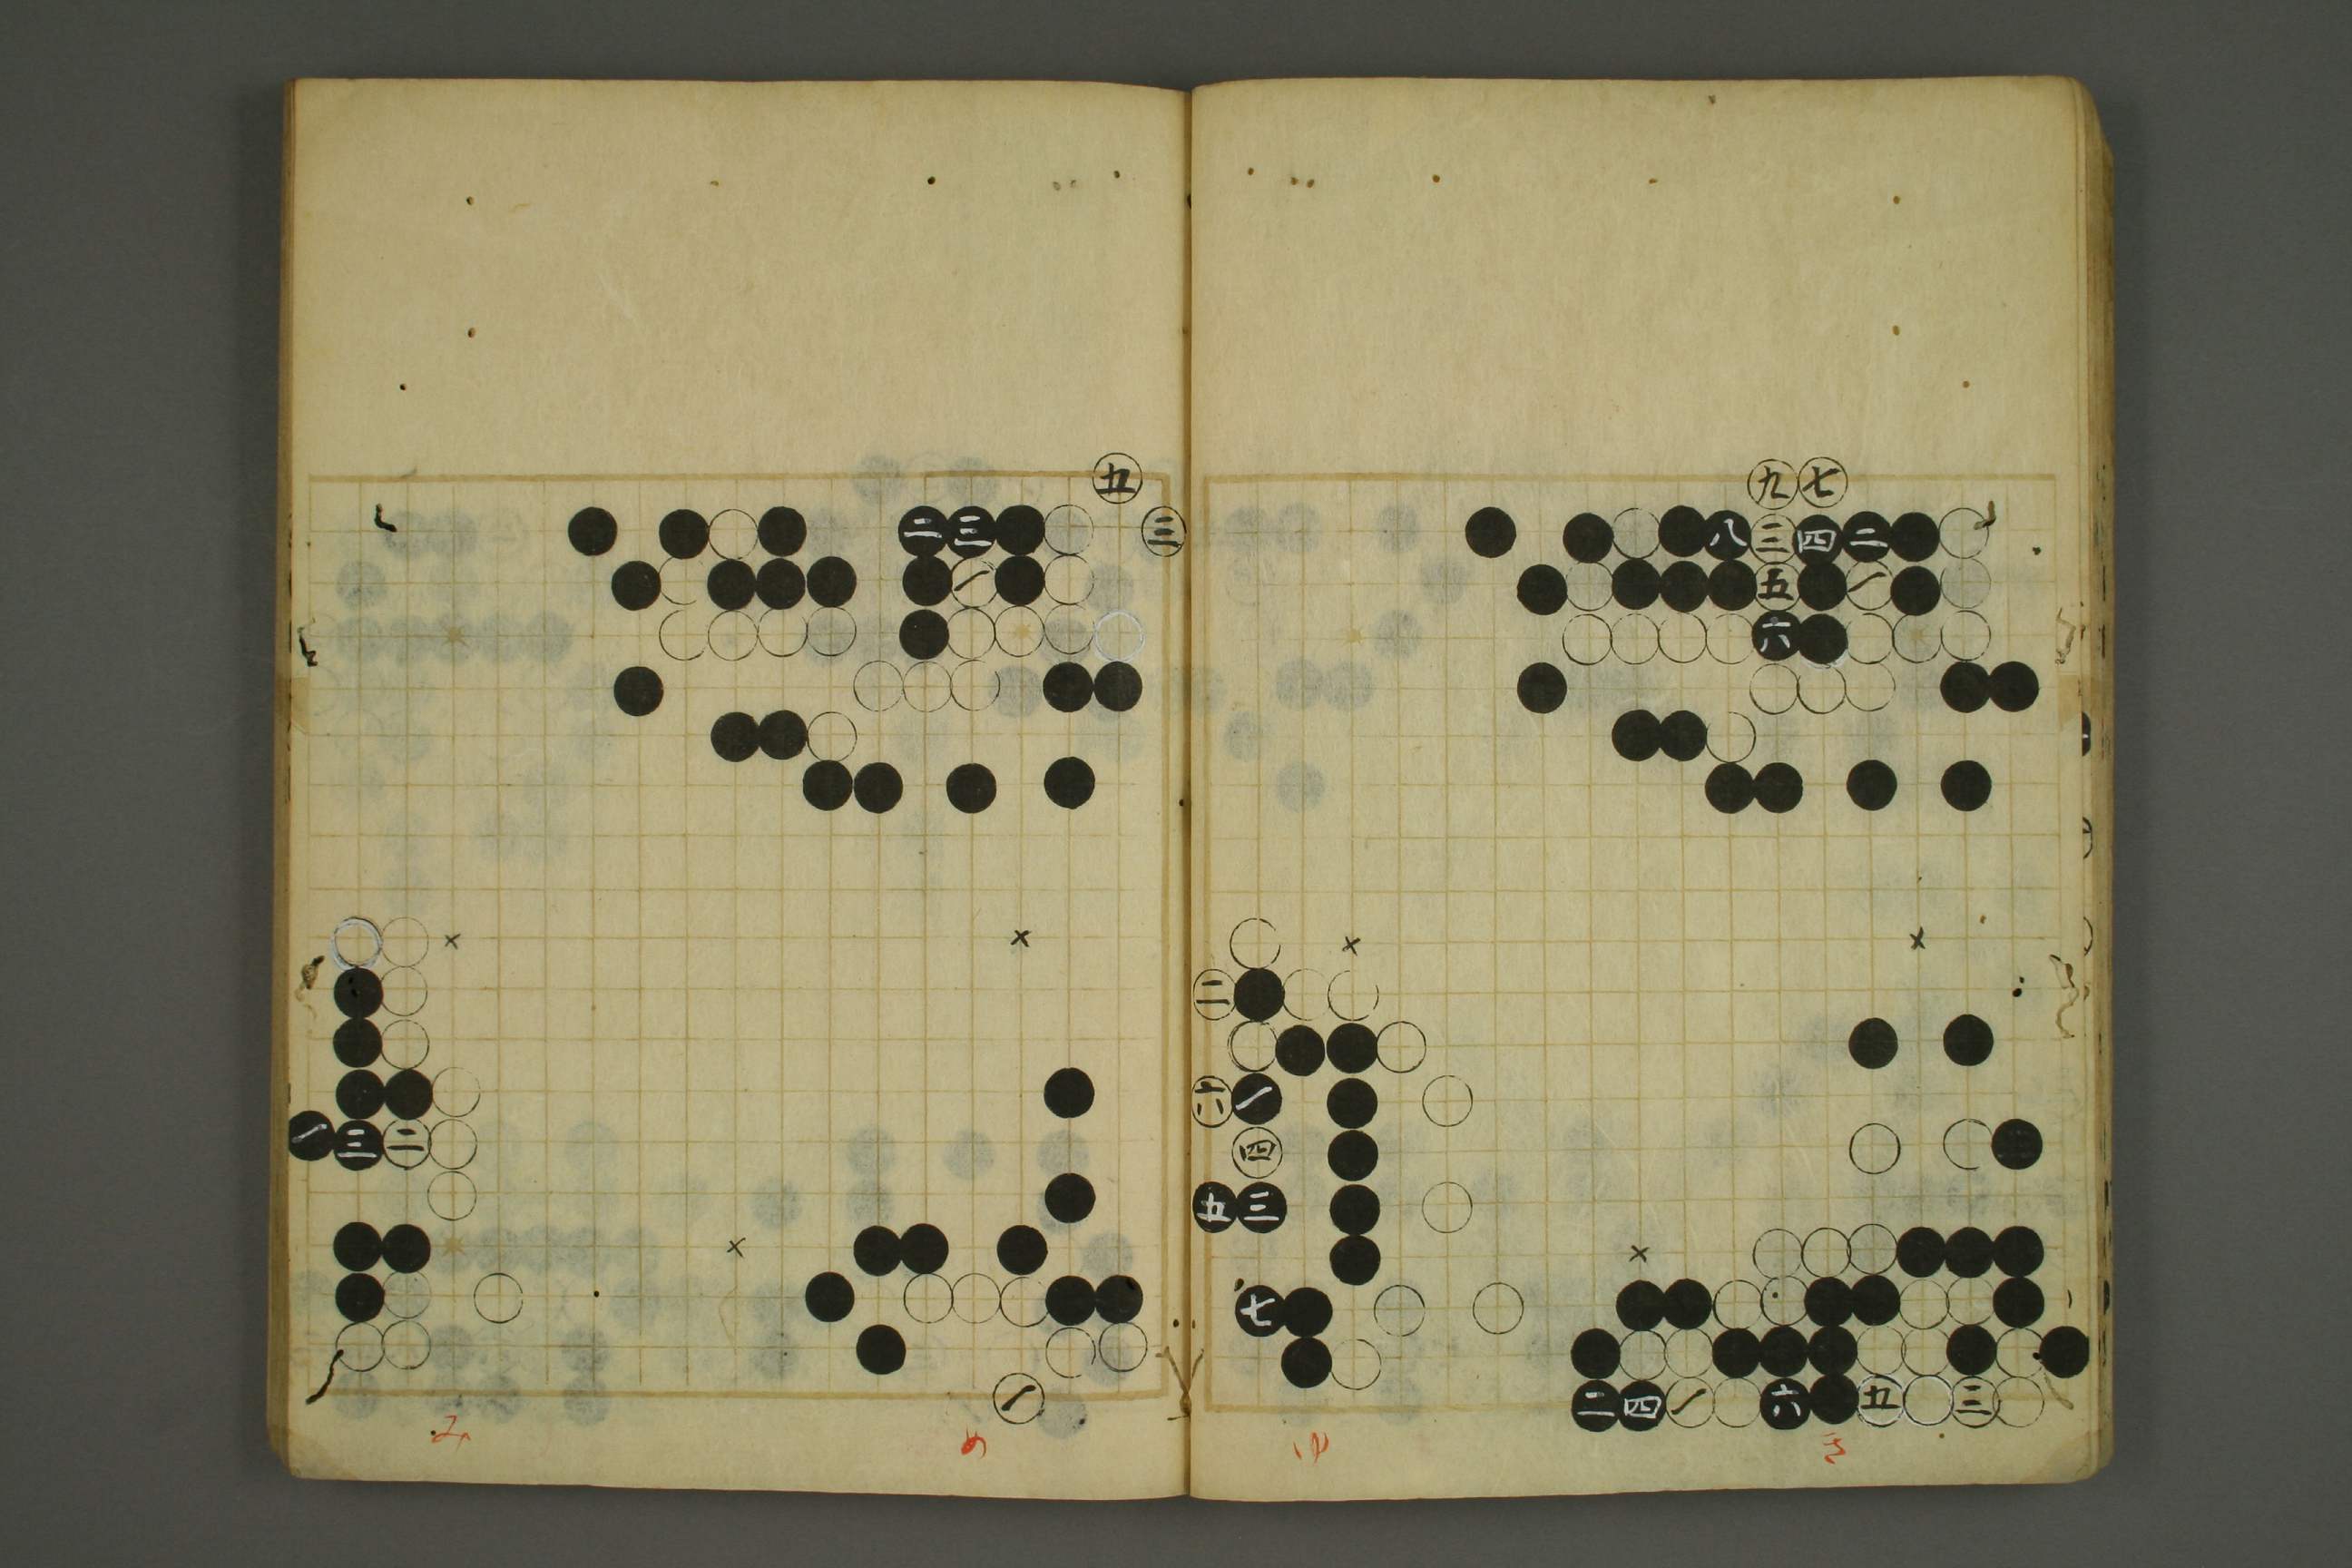 九七
八三四二
五一
六
二
六一
四
五三
七
二四一六五三
ゆ
き
五
二三
三
一
一三二
一
み
め